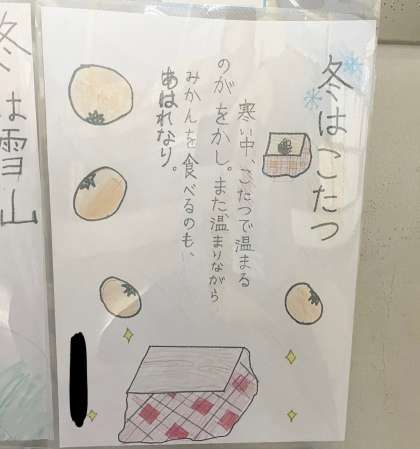 冬はこたつ
寒い中、こたつで温まる
のがをかし。また、温まりながら
みかんを食べるのも、
あはれなり。
冬は雪山